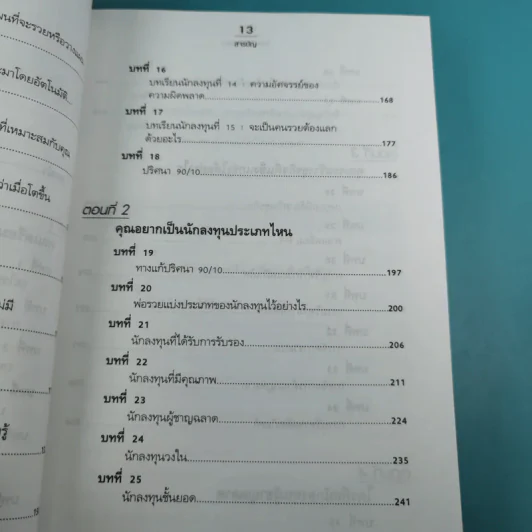 13
สารบัญ
บทที่ 16
บทเรียนนักลงทุนที่ 14 : ความอัศจรรย์ของ
ความผิดพลาด...168
บทที่ 17
บทเรียนนักลงทุนที่ 15 : จะเป็นคนรวยต้องแลก
ด้วยอะไร...177
บทที่ 18
ปริศนา 90/10...186
ตอนที่ 2
คุณอยากเป็นนักลงทุนประเภทไหน
บทที่ 19
ทางแก้ปริศนา 90/10...197
บทที่ 20
พ่อรวยแบ่งประเภทของนักลงทุนไว้อย่างไร...200
บทที่ 21
นักลงทุนที่ได้รับการรับรอง...206
บทที่ 22
นักลงทุนที่มีคุณภาพ...211
บทที่ 23
นักลงทุนผู้ชาญฉลาด...224
บทที่ 24
นักลงทุนวงใน...235
บทที่ 25
นักลงทุนชั้นยอด...241
ที่จะรวยหรือวาง
มาโดยอัตโนมัติ...
ที่เหมาะสมกับคุณ
เมื่อโตขึ้น